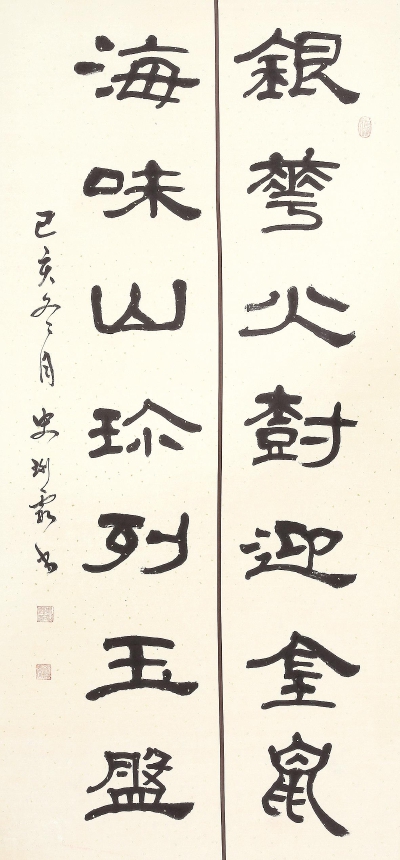 銀花火尌迎金鼠
海味山珍列玉盤
己亥冬月 史